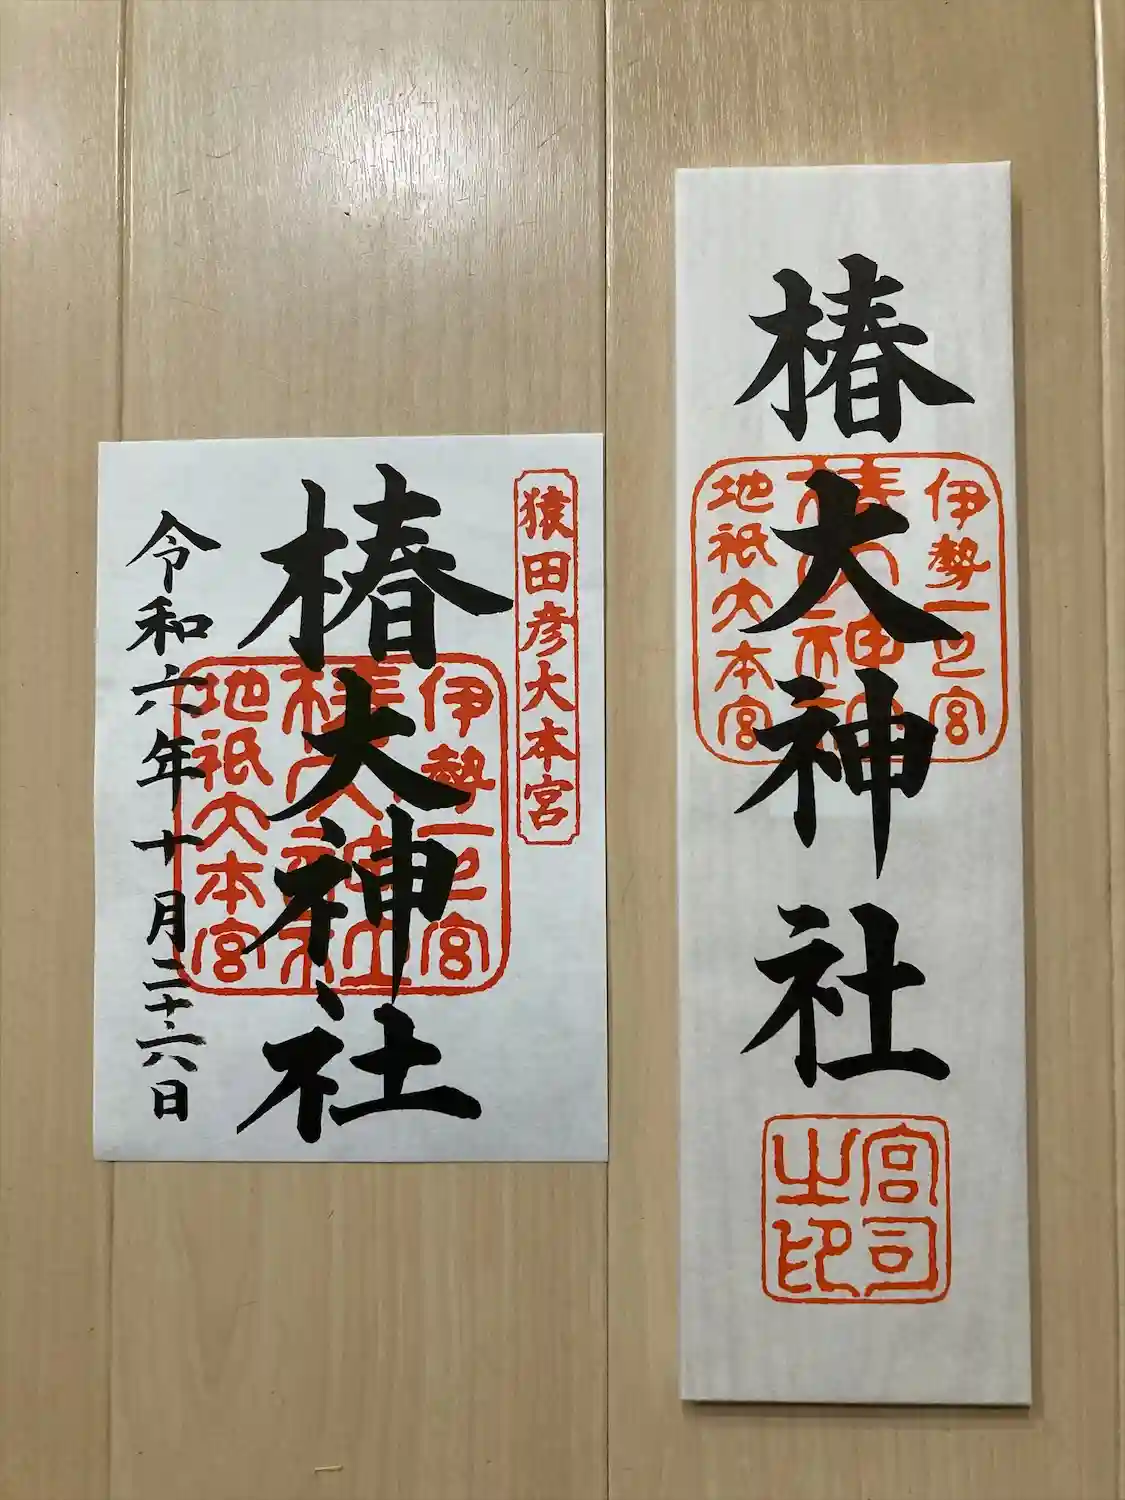 猿田彦大本宮
椿大神社
伊勢一之宮
椿大神社
地祇大本宮
令和六年十月二十六日
椿大神社
伊勢一之宮
椿大神社
地祇大本宮
宮司
之印